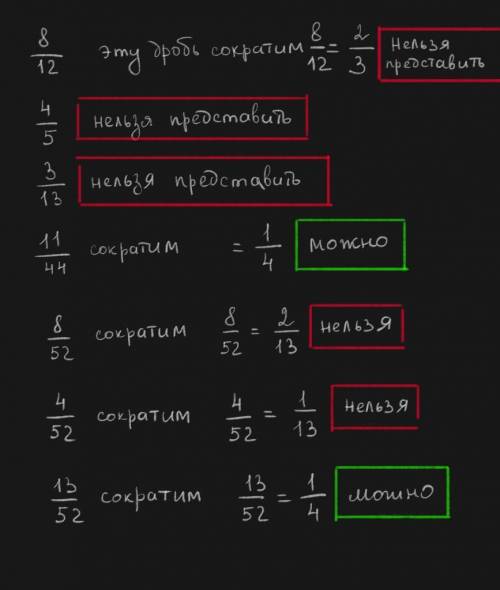 8/12 эту дробь сократим 8/12 = 2/3 нельзя представить
4/5 нельзя представить
3/13 нельзя представить
11/44 сократим = 1/4 можно
8/52 сократим 8/52 = 2/13 нельзя
4/52 сократим 4/52 = 1/13 нельзя
13/52 сократим 13/52 = 1/4 можно